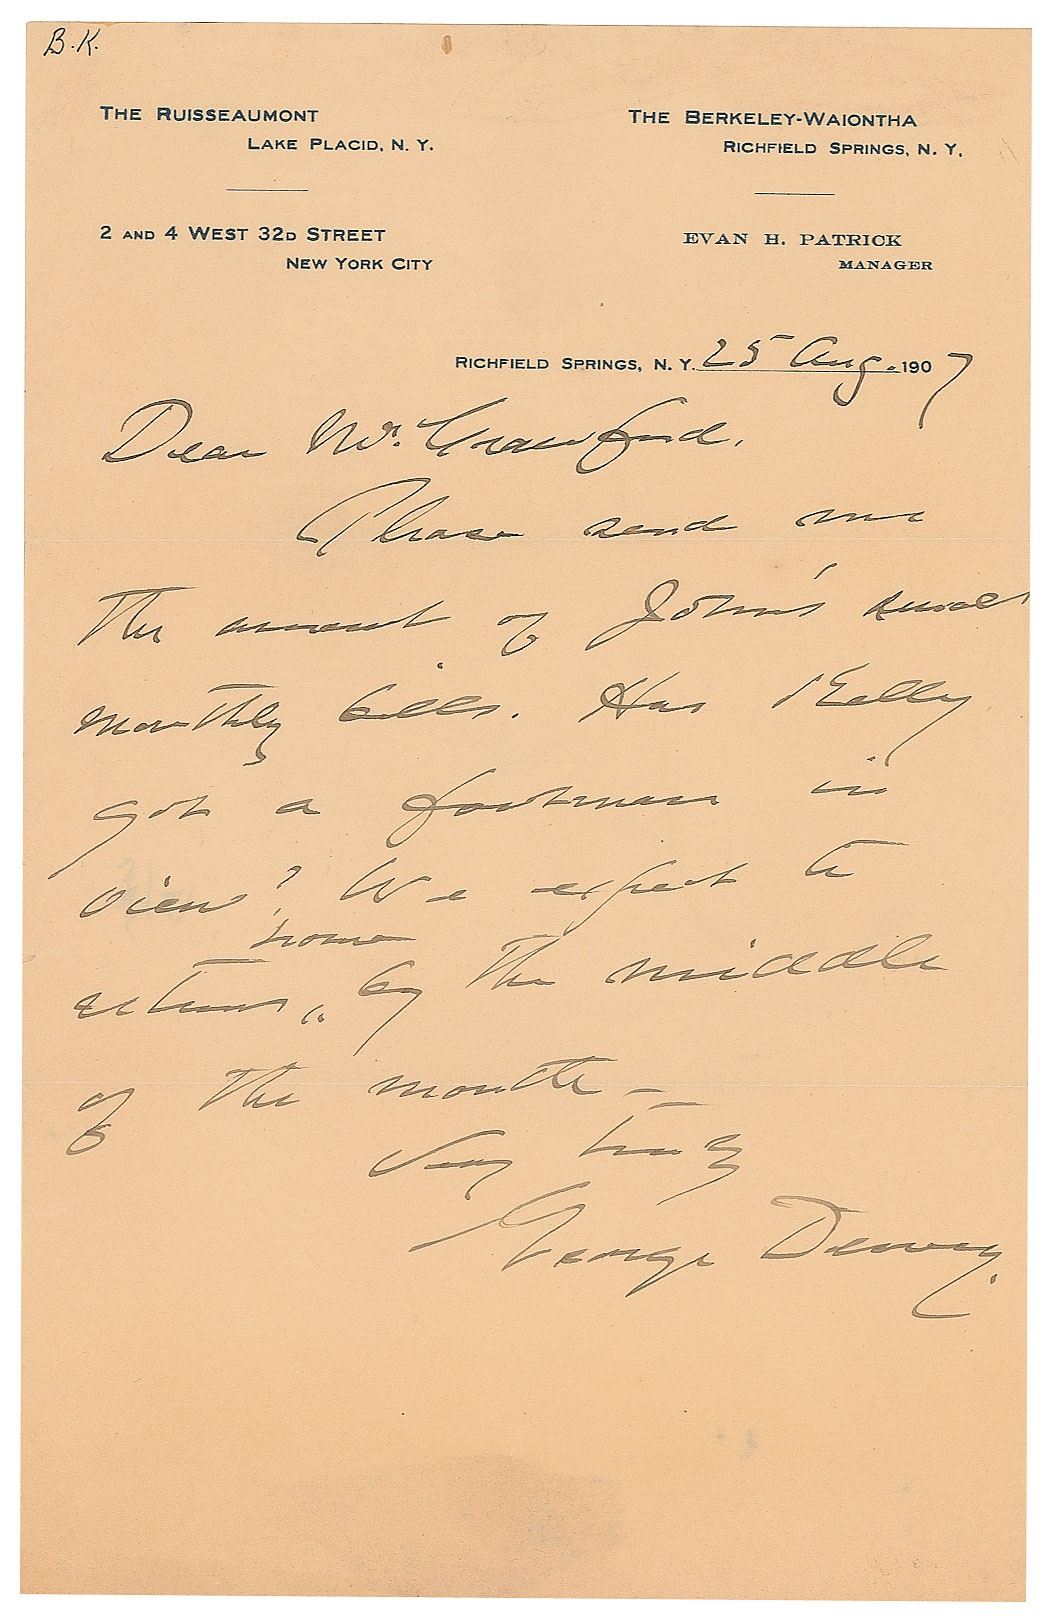 B.K.
THE RUISSEAUMONT
LAKE PLACID, N. Y.
THE BERKELEY-WAIONTHA
RICHFIELD SPRINGS, N. Y.
2 AND 4 WEST 32D STREET
NEW YORK CITY
EVAN H. PATRICK
MANAGER
RICHFIELD SPRINGS, N. Y. 25 Aug. 1907
Dear Mr. Crawford,
Please send me
the amount of John's usual
monthly bills. Has Kelly
got a footman in
view? We expect to
home
return, by the middle
of the month —
Very truly
George Dewey.